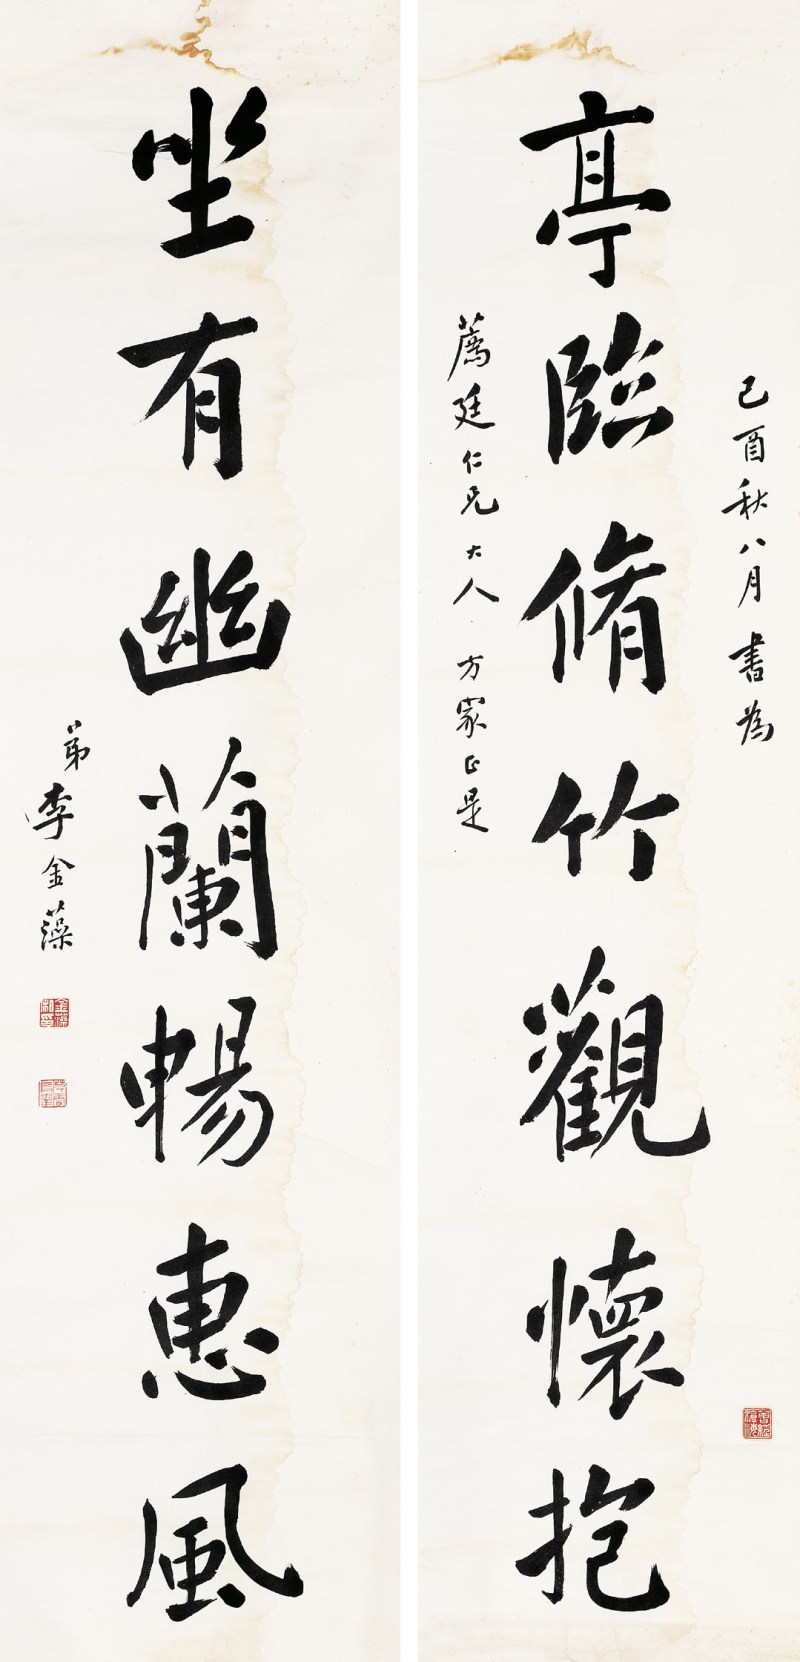 己酉秋八月書為
亭臨脩竹觀懷抱
薦廷仁兄大人方家正是
坐有幽蘭暢惠風
弟李金藻